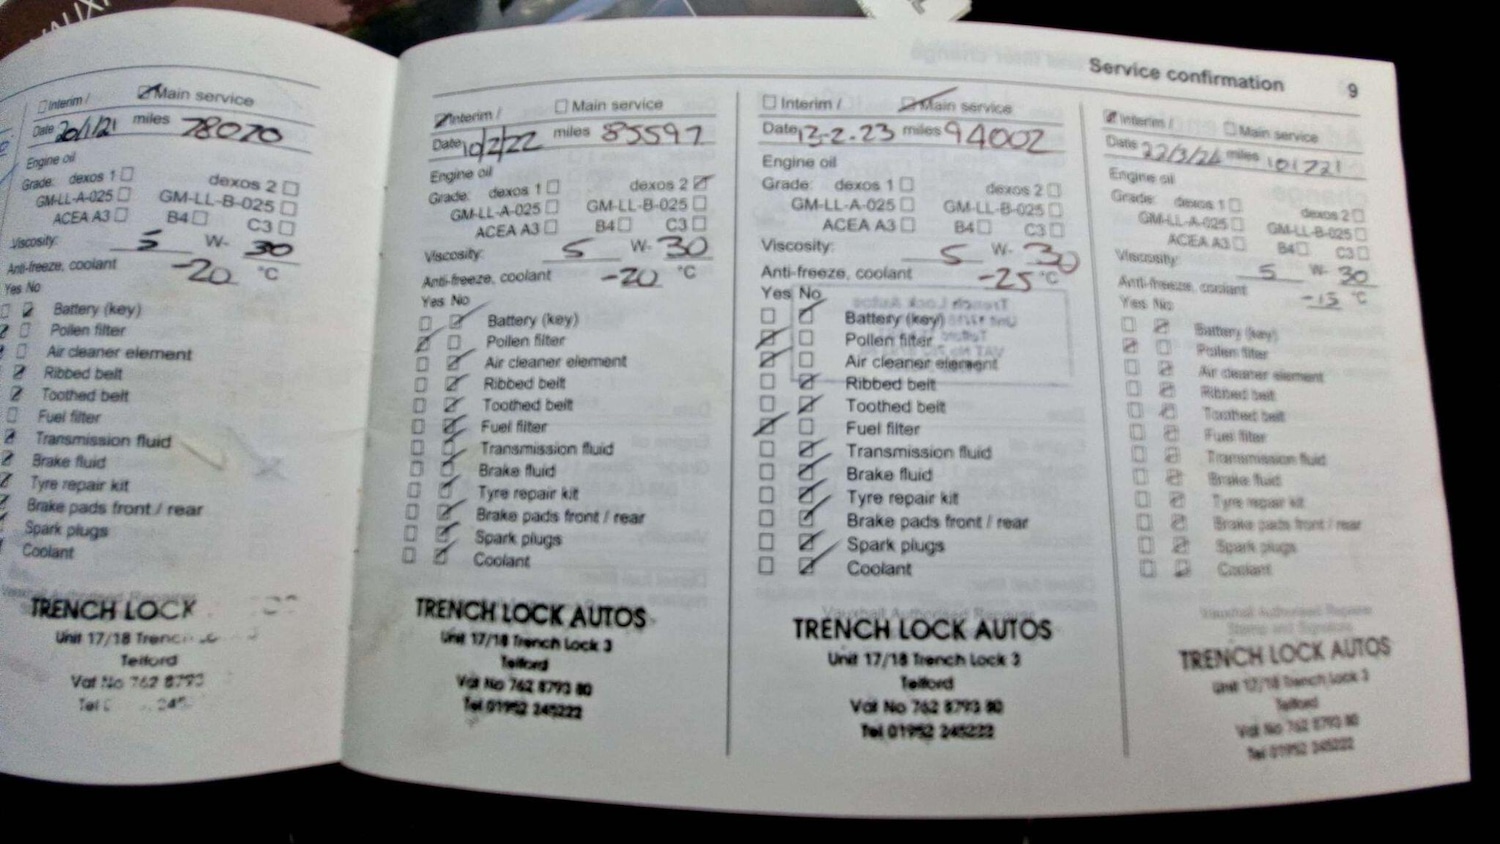 Service confirmation 9
Interim / Main service
Date 20/1/21 miles 78070
Engine oil
Grade: dexos 1 dexos 2
GM-LL-A-025 GM-LL-B-025
ACEA A3 B4 C3
Viscosity: 5 W- 30
Anti-freeze, coolant -20 °C
Yes No
Battery (key)
Pollen filter
Air cleaner element
Ribbed belt
Toothed belt
Fuel filter
Transmission fluid
Brake fluid
Tyre repair kit
Brake pads front / rear
Spark plugs
Coolant
TRENCH LOCK
Unit 17/18 Trenc
Telford
Vat No 762 8793
Tel 245
Interim / Main service
Date 10/2/22 miles 85597
Engine oil
Grade: dexos 1 dexos 2
GM-LL-A-025 GM-LL-B-025
ACEA A3 B4 C3
Viscosity: 5 W- 30
Anti-freeze, coolant -20 °C
Yes No
Battery (key)
Pollen filter
Air cleaner element
Ribbed belt
Toothed belt
Fuel filter
Transmission fluid
Brake fluid
Tyre repair kit
Brake pads front / rear
Spark plugs
Coolant
TRENCH LOCK AUTOS
Unit 17/18 Trench Lock 3
Telford
Vat No 762 8793 80
Tel 01952 245222
Interim / Main service
Date 13-2-23 miles 94002
Engine oil
Grade: dexos 1 dexos 2
GM-LL-A-025 GM-LL-B-025
ACEA A3 B4 C3
Viscosity: 5 W- 30
Anti-freeze, coolant -25 °C
Yes No
Battery (key)
Pollen filter
Air cleaner element
Ribbed belt
Toothed belt
Fuel filter
Transmission fluid
Brake fluid
Tyre repair kit
Brake pads front / rear
Spark plugs
Coolant
Vauxhall Authorised Repairer
TRENCH LOCK AUTOS
Unit 17/18 Trench Lock 3
Telford
Vat No 762 8793 80
Tel 01952 245222
Interim / Main service
Date 22/3/24 miles 101721
Engine oil
Grade: dexos 1 dexos 2
GM-LL-A-025 GM-LL-B-025
ACEA A3 B4 C3
Viscosity: 5 W- 30
Anti-freeze, coolant -15 °C
Yes No
Battery (key)
Pollen filter
Air cleaner element
Ribbed belt
Toothed belt
Fuel filter
Transmission fluid
Brake fluid
Tyre repair kit
Brake pads front / rear
Spark plugs
Coolant
Vauxhall Authorised Repairer
Stamp and Signature
TRENCH LOCK AUTOS
Unit 17/18 Trench Lock 3
Telford
Vat No 762 8793 80
Tel 01952 245222